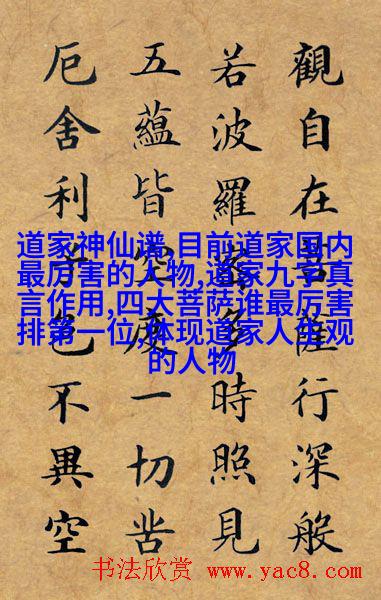 觀自在菩薩行深般
若波羅蜜多時照見
五蘊皆空度一切苦
厄舍利子色不異空
道家神仙谱,目前道家国内
最厉害的人物,道家九字真
言作用,四大菩萨谁最厉害
排第一位,体现道家人生观
的人物
书法欣赏 www.yac8.com